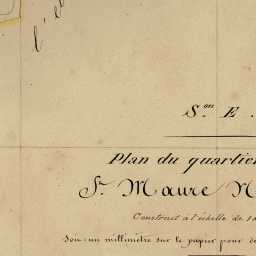 l'e
S.on E.
Plan du quartie
St. Maure N
Construit à l'échelle de 1 à
Soit un millimètre sur le papier pour d